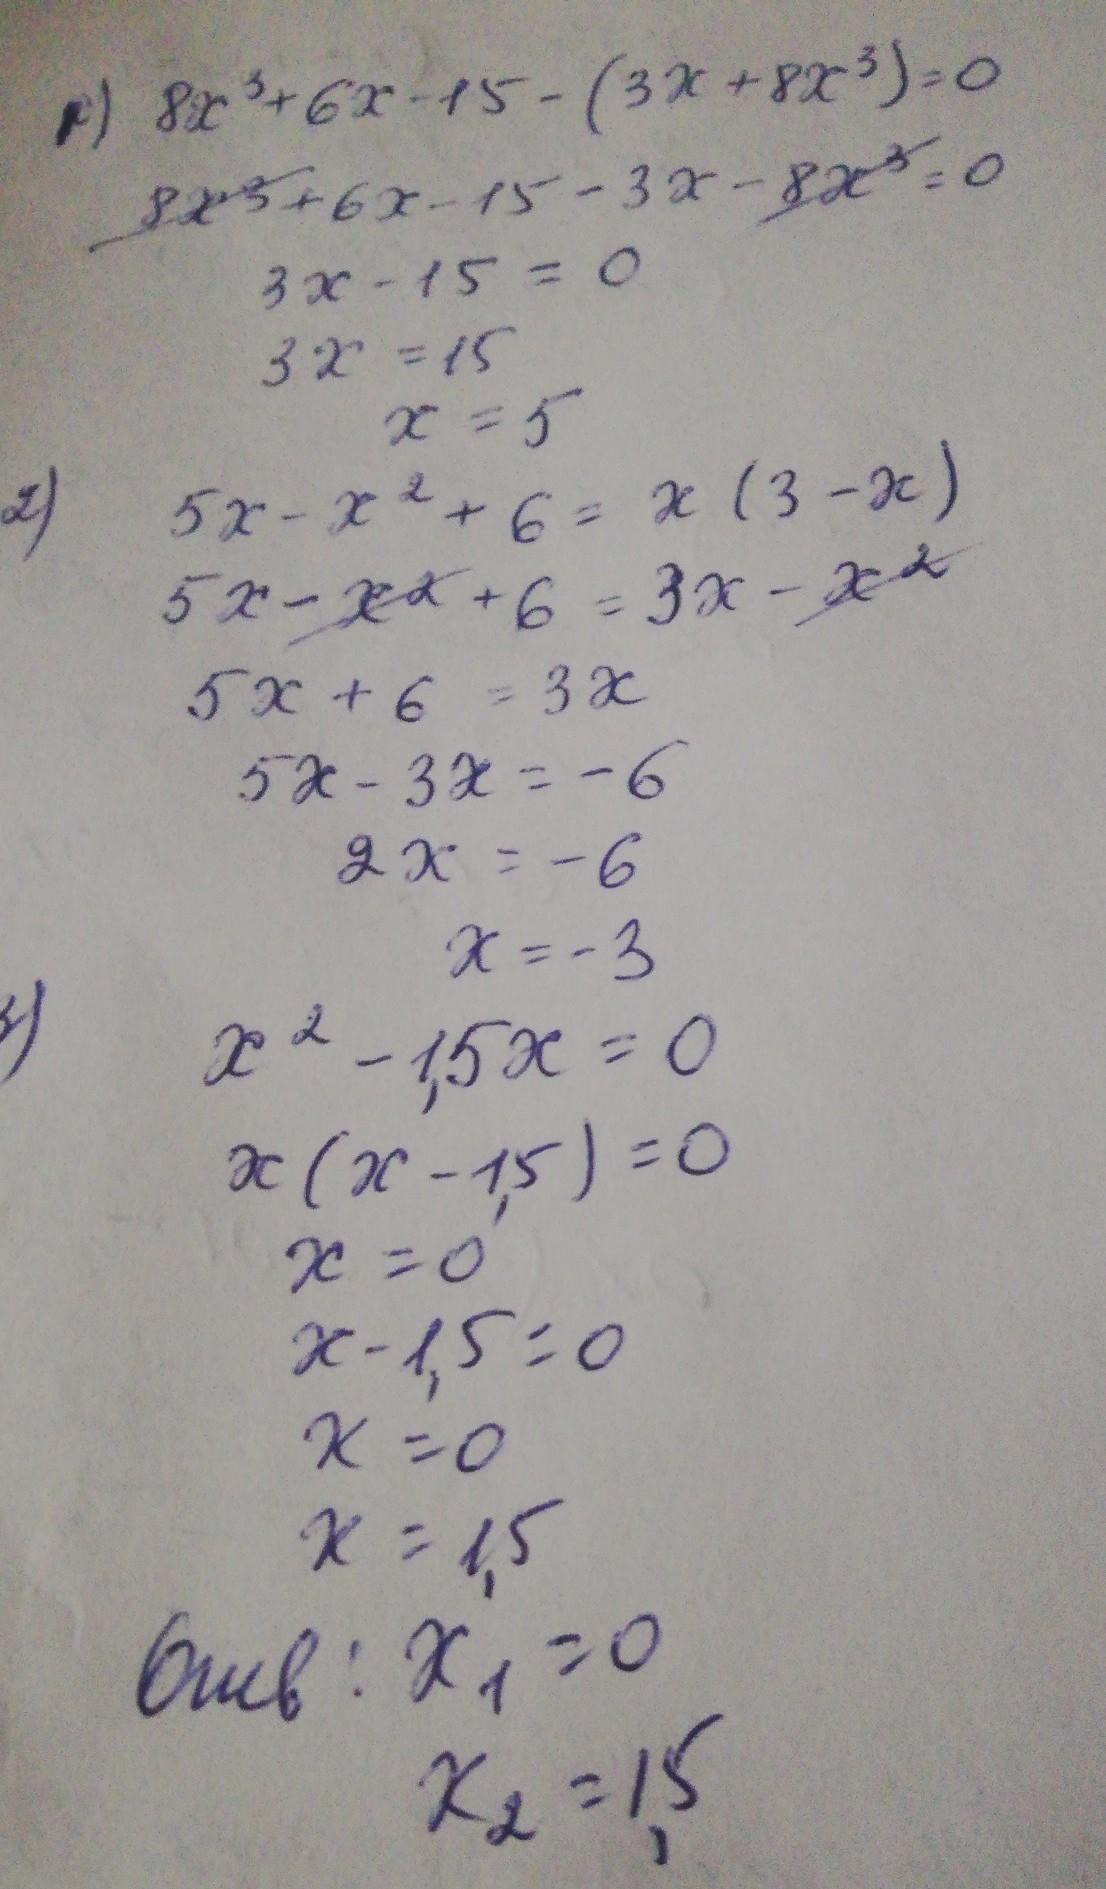 1) 8x³+6x-15-(3x+8x³)=0
8x³+6x-15-3x-8x³=0
3x-15=0
3x=15
x=5
2) 5x-x²+6=x(3-x)
5x-x²+6=3x-x²
5x+6=3x
5x-3x=-6
2x=-6
x=-3
3) x²-1,5x=0
x(x-1,5)=0
x=0
x-1,5=0
x=0
x=1,5
Отв: x₁=0
x₂=1,5